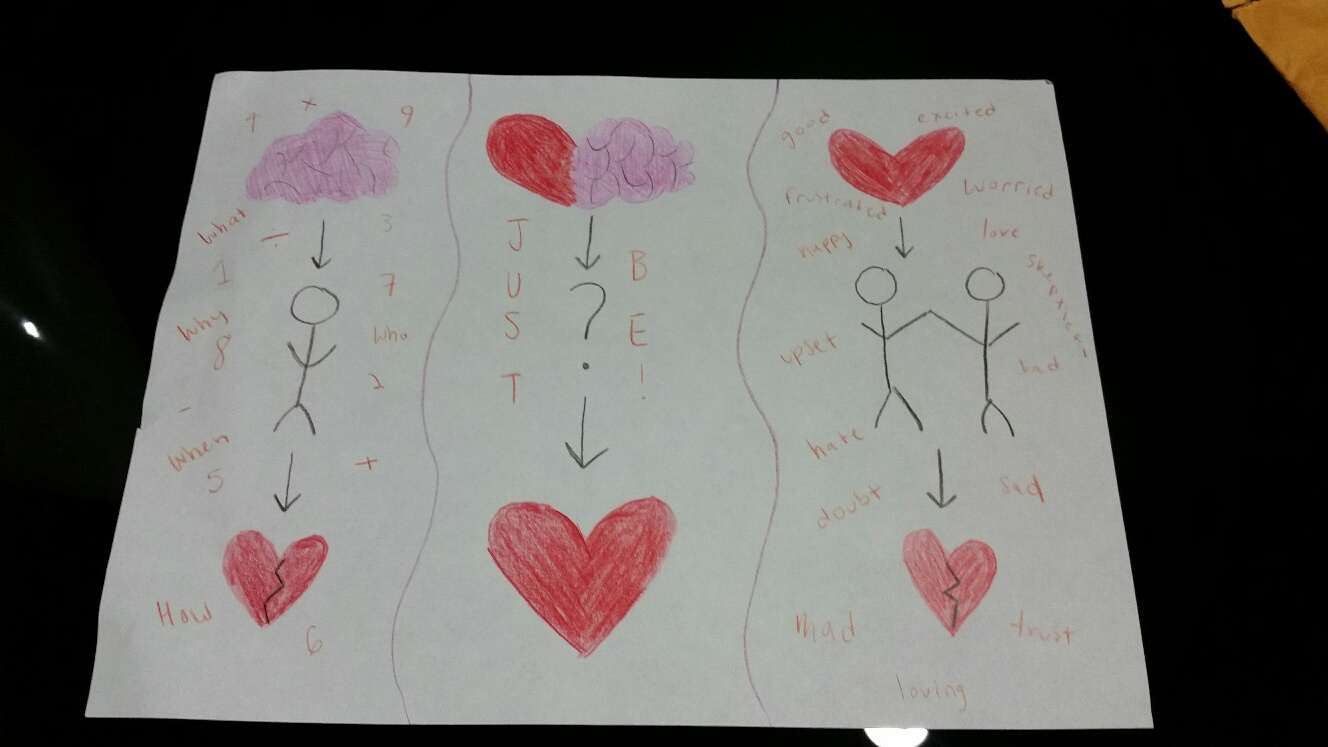 9 × 9
What ÷ 3
1 7
Why who
8 2
-
When +
5
How
6
J
U
S
T
?
B
E
!
good excited
frustrated worried
happy love
upset bad
hate
doubt sad
mad trust
loving